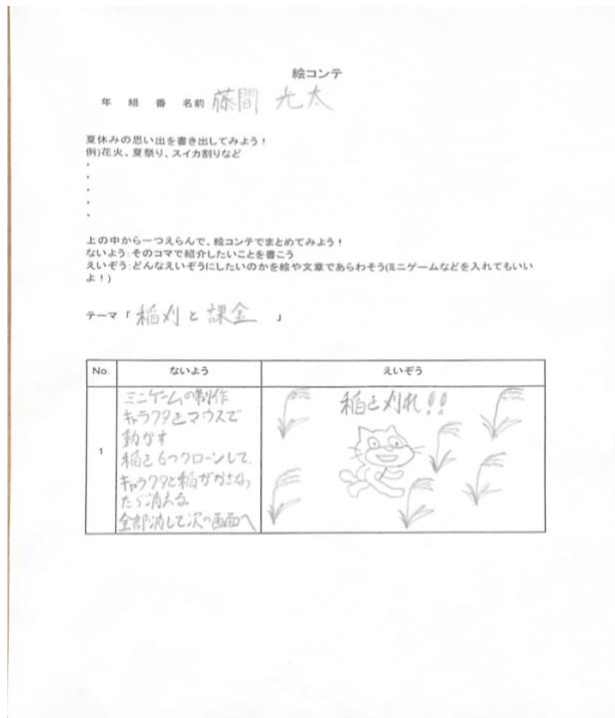 絵コンテ
年 組 番 名前 藤間 光太
夏休みの思い出を書き出してみよう!
例)花火、夏祭り、スイカ割りなど
・
・
・
・
・
上の中から一つえらんで、絵コンテでまとめてみよう!
ないよう:そのコマで紹介したいことを書こう
えいぞう:どんなえいぞうにしたいのかを絵や文章であらわそう(ミニゲームなどを入れてもいい
よ!)
テーマ「 稲刈と課金 」
No. ないよう えいぞう
1
ミニゲームの制作
キャラクタをマウスで
動かす
稲を6つクローンして、
キャラクタと稲がかさなっ
たら消える
全部消して次の画面へ
稲を刈れ!!